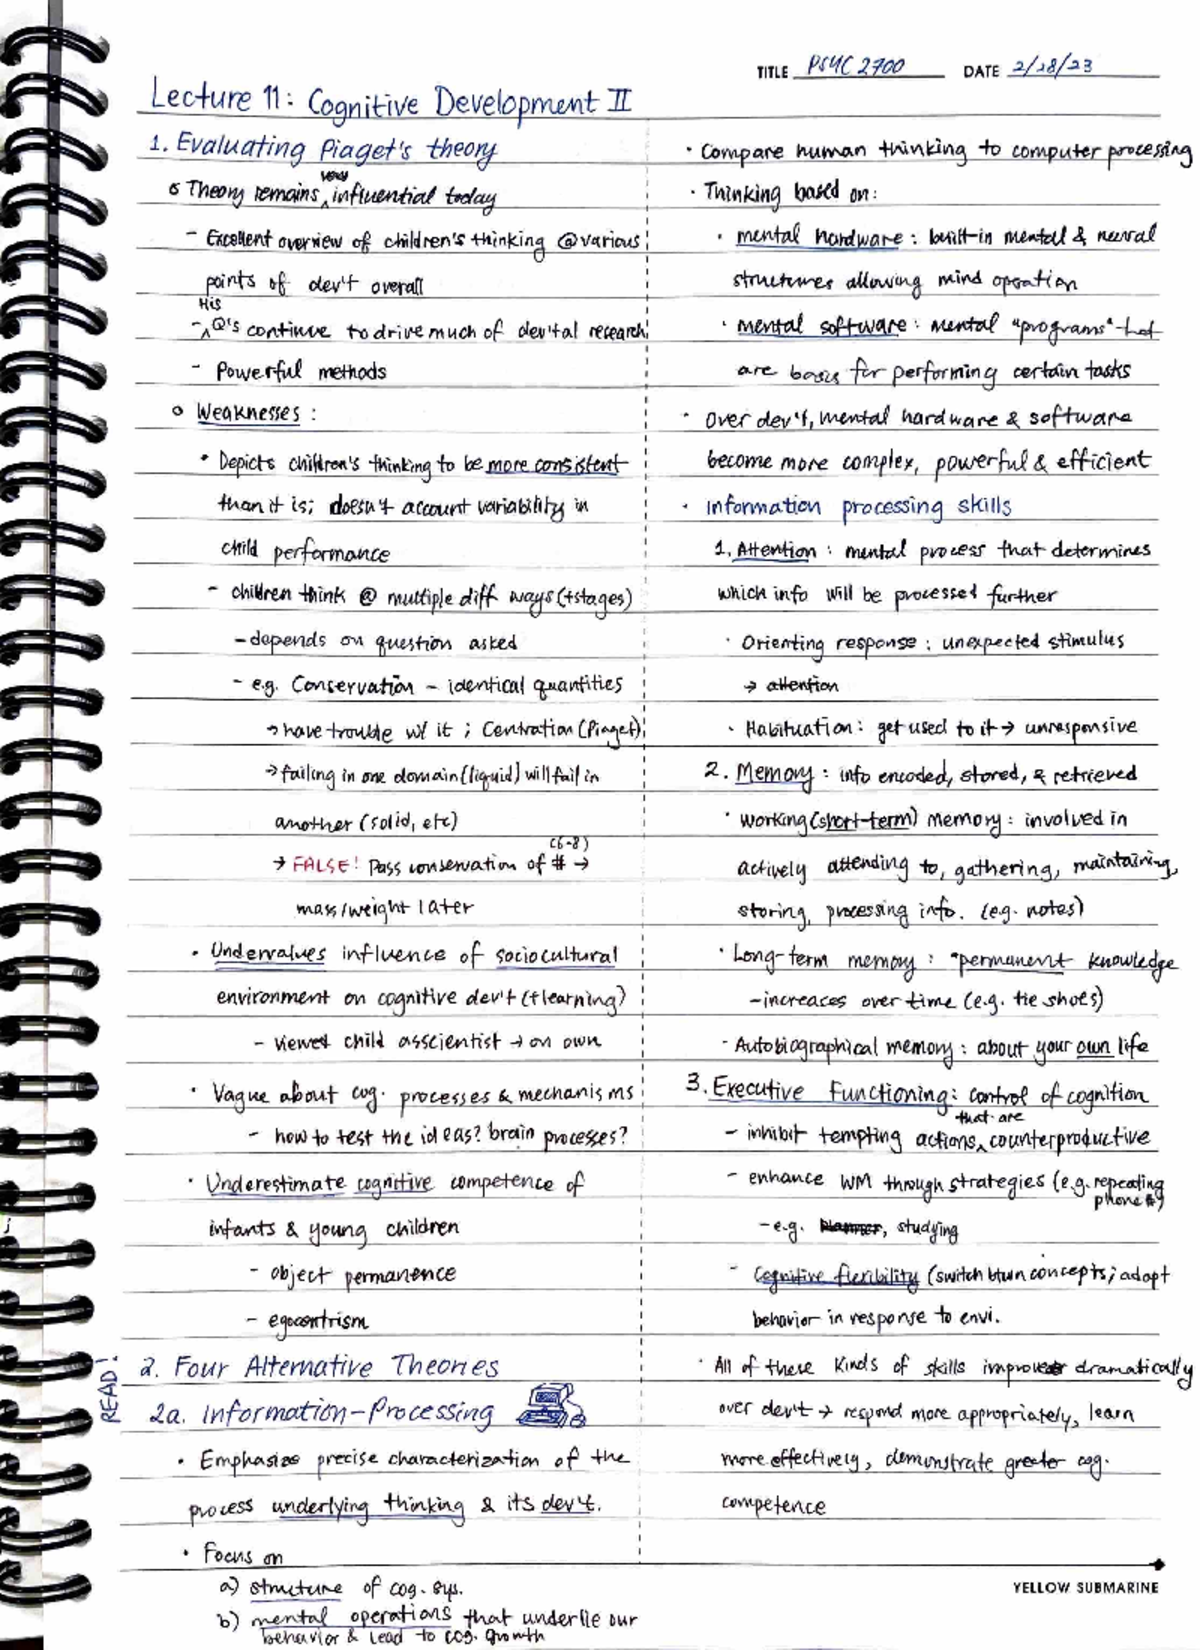 TITLE PSYC 2700 DATE 2/28/23
Lecture 11: Cognitive Development II
1. Evaluating Piaget's theory
very
o Theory remains ^ influential today
- Excellent overview of children's thinking @ various
points of dev't overall
His
- ^ Q's continue to drive much of dev'tal research
- Powerful methods
o Weaknesses:
• Depicts children's thinking to be more consistent
than it is; doesn't account variability in
child performance
- children think @ multiple diff ways (+stages)
- depends on question asked
- e.g. Conservation - identical quantities
→ have trouble w/ it; Centration (Piaget)
→ failing in one domain (liquid) will fail in
another (solid, etc)
(6-8)
→ FALSE! Pass conservation of # →
mass/weight later
• Undervalues influence of sociocultural
environment on cognitive dev't (+learning)
- viewed child as scientist → on own
• Vague about cog. processes & mechanisms
- how to test the ideas? brain processes?
• Underestimate cognitive competence of
infants & young children
- object permanence
- egocentrism
READ!
2. Four Alternative Theories
2a. Information-Processing
• Emphasize precise characterization of the
process underlying thinking & its dev't.
• Focus on
a) structure of cog. sys.
b) mental operations that underlie our
behavior & lead to cog. growth
• Compare human thinking to computer processing
• Thinking based on:
• mental hardware: built-in mental & neural
structures allowing mind operation
• mental software: mental "programs" that
are basis for performing certain tasks
• Over dev't, mental hardware & software
become more complex, powerful & efficient
• Information processing skills
1. Attention: mental process that determines
which info will be processed further
• Orienting response: unexpected stimulus
→ attention
• Habituation: get used to it → unresponsive
2. Memory: info encoded, stored, & retrieved
• Working (short-term) memory: involved in
actively attending to, gathering, maintaining,
storing, processing info. (e.g. notes)
• Long-term memory: "permanent knowledge
- increases over time (e.g. tie shoes)
• Autobiographical memory: about your own life
3. Executive Functioning: control of cognition
that are
- inhibit tempting actions ^ counterproductive
- enhance WM through strategies (e.g. repeating
phone #)
- e.g. planner, studying
- Cognitive flexibility (switch btwn concepts; adapt
behavior in response to envi.
• All of these kinds of skills improve dramatically
over dev't → respond more appropriately, learn
more effectively, demonstrate greater cog.
competence
YELLOW SUBMARINE